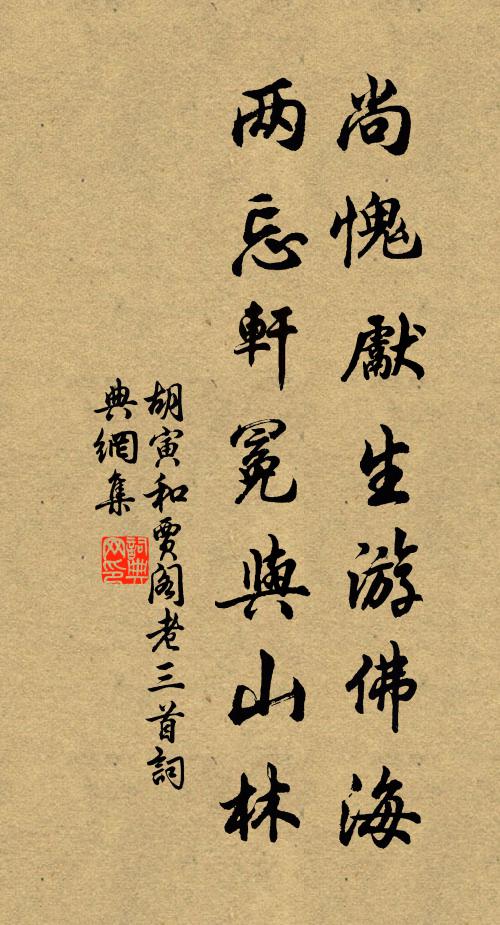 尚愧獻生游佛海
两忘軒冕與山林
胡寅和賈阁老三首詞
典網集
詞典网印